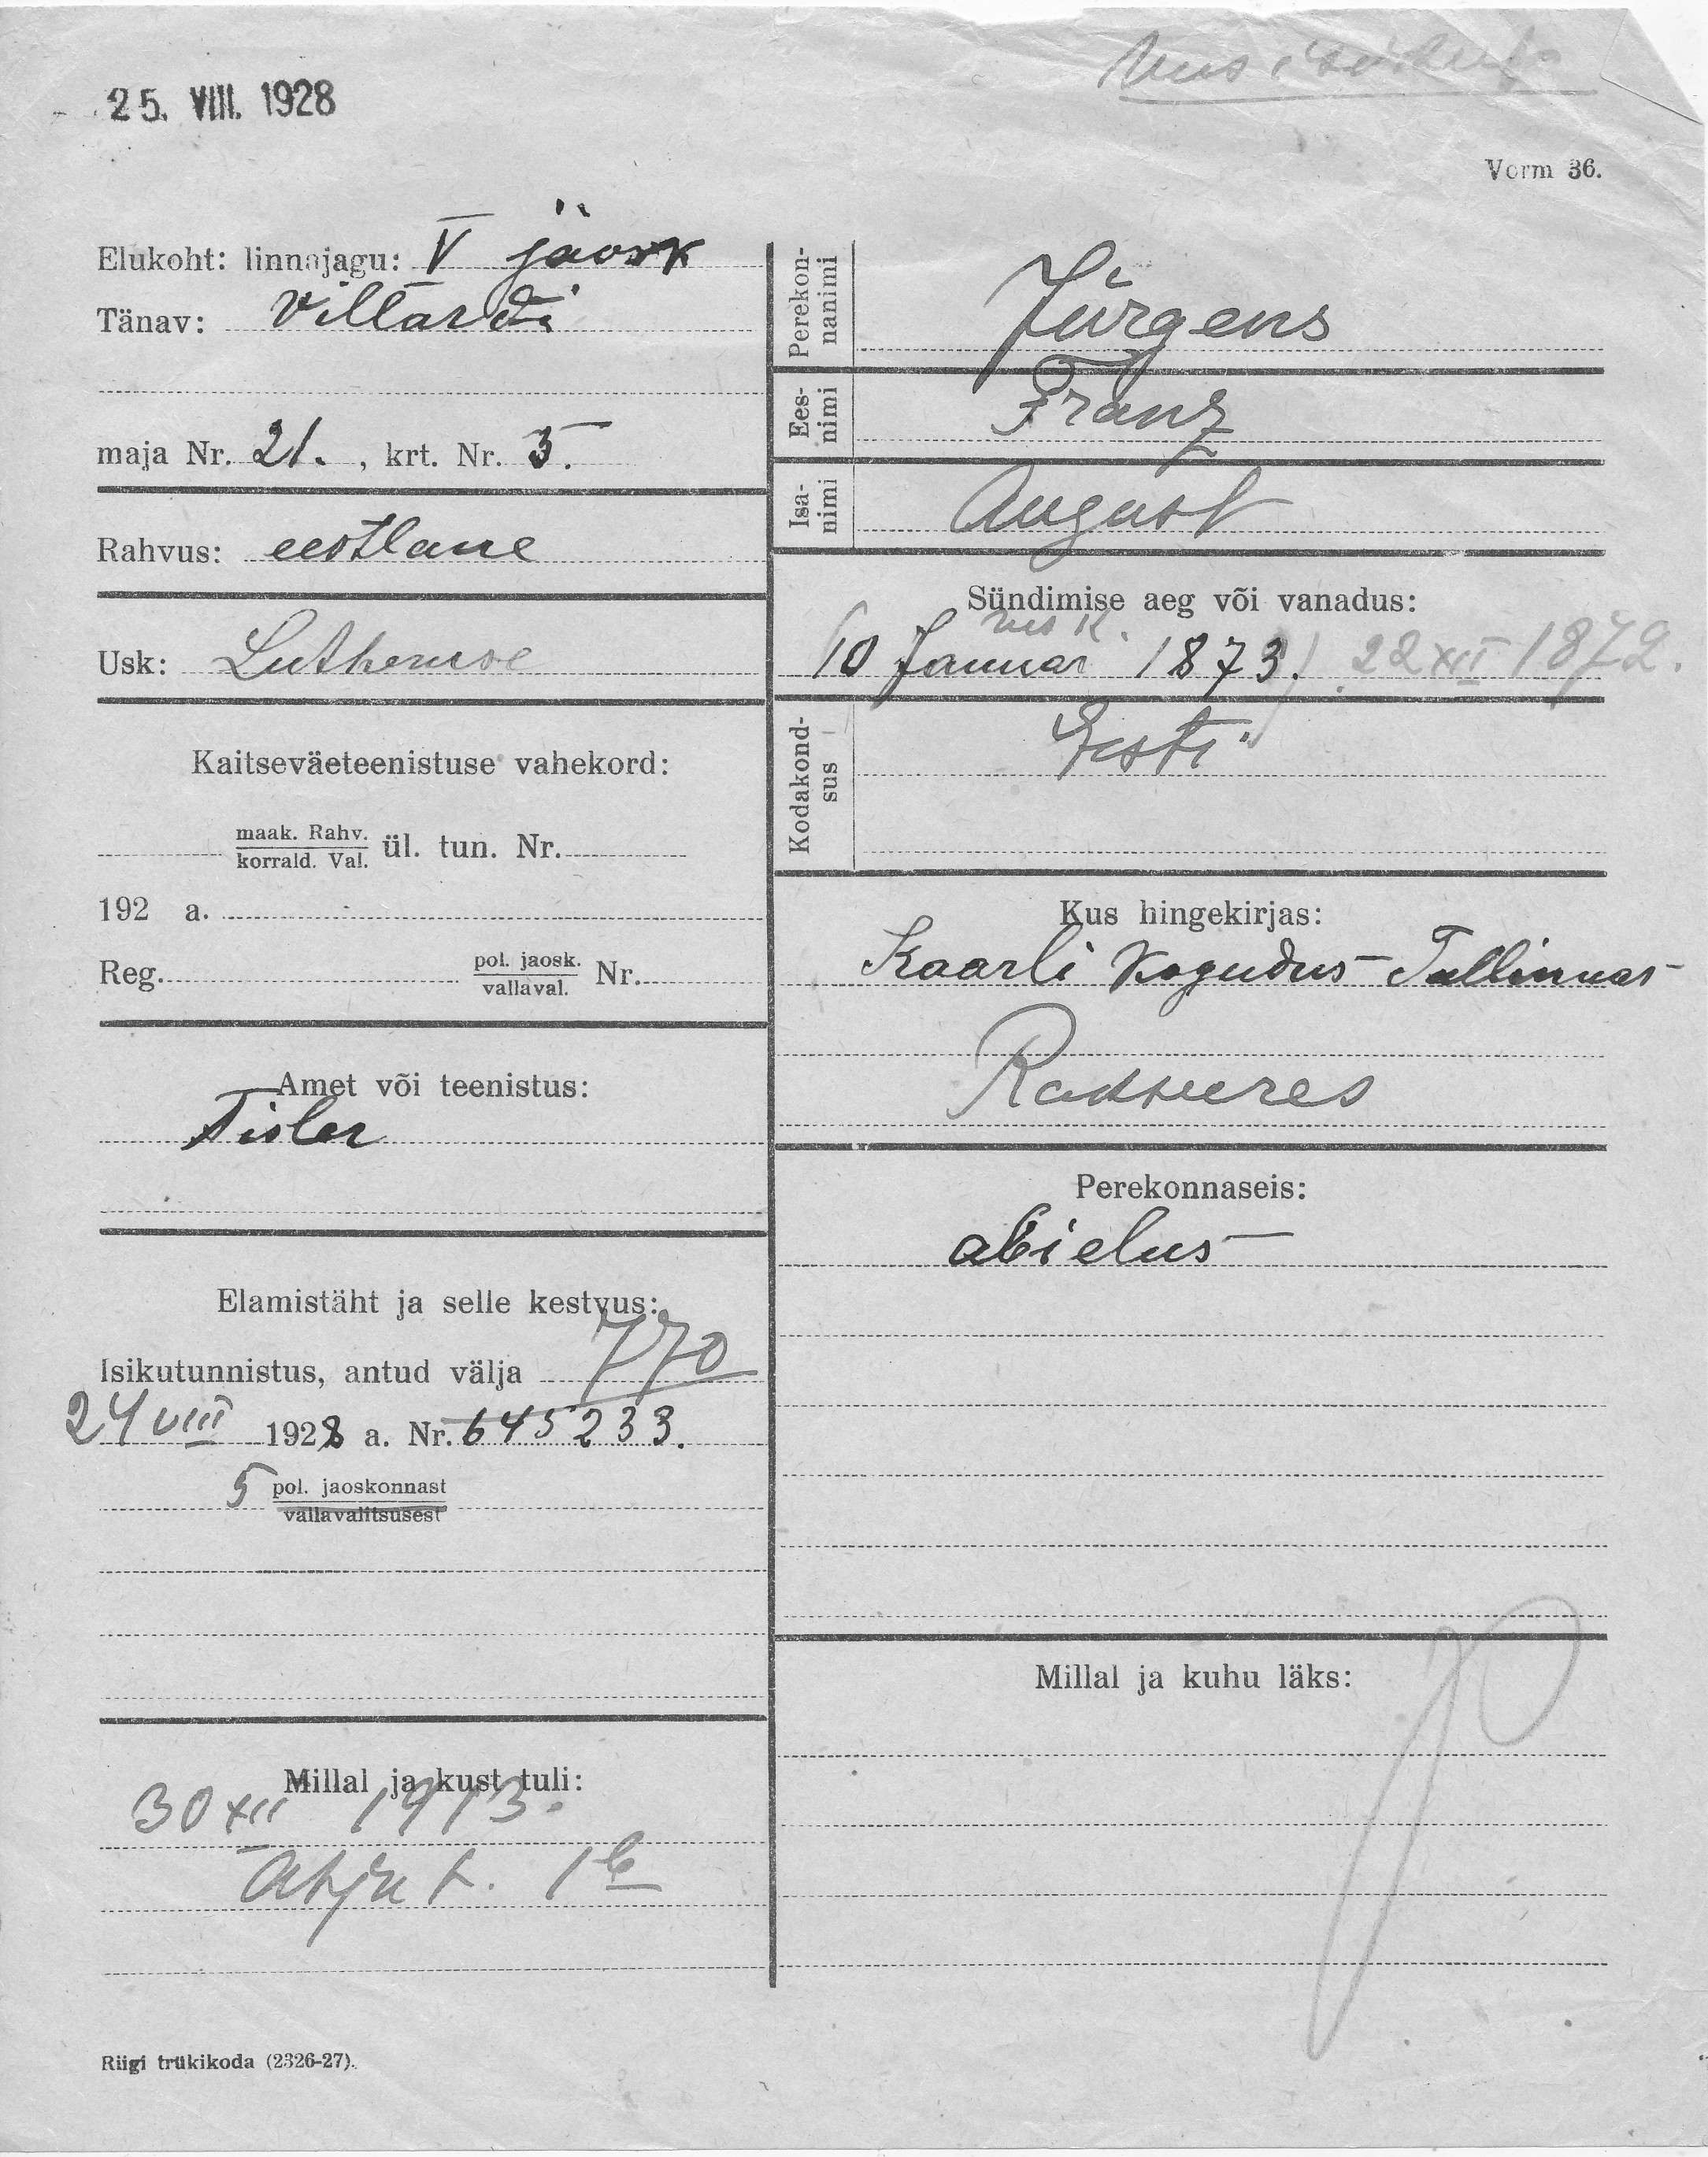 25. VIII. 1928
Vorm 36.
Elukoht: linnajagu: V jaosk
Tänav: Villardi
maja Nr. 21. , krt. Nr. 5.
Rahvus: eestlane
Usk: Lutheruse
Kaitseväeteenistuse vahekord:
maak. Rahv.
korrald. Val. ül. tun. Nr.
192 a.
Reg. pol. jaosk.
vallaval. Nr.
Amet või teenistus:
Tisler
Elamistäht ja selle kestvus:
Isikutunnistus, antud välja 770
24 VIII 1928 a. Nr. 645233.
5 pol. jaoskonnast
vallavalitsusest
Millal ja kust tuli:
30 XII 1913.
t. 1b
Riigi trükikoda (2326-27).
Perekon-
nanimi Jürgens
Ees-
nimi Franz
Isa-
nimi August
Sündimise aeg või vanadus:
10 Januar 1873. 22 XII 1872.
Kodakond-
sus Eesti
Kus hingekirjas:
Kaarli Kogudus Tallinnas
Rakveres
Perekonnaseis:
abielus
Millal ja kuhu läks: